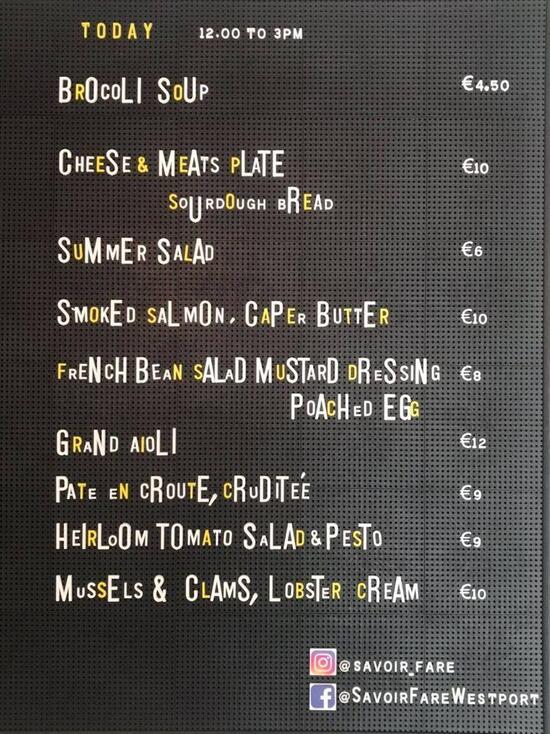 TODAY 12.00 TO 3PM
BROCOLI SOUP €4.50
CHEESE & MEATS PLATE €10
SOURDOUGH BREAD
SUMMER SALAD €6
SMOKED SALMON, CAPER BUTTER €10
FRENCH BEAN SALAD MUSTARD DRESSING €8
POACHED EGG
GRAND AIOLI €12
PATE EN CROUTE, CRUDITEÉ €9
HEIRLOOM TOMATO SALAD & PESTO €9
MUSSELS & CLAMS, LOBSTER CREAM €10
@SAVOIR_FARE
@SAVOIRFAREWESTPORT